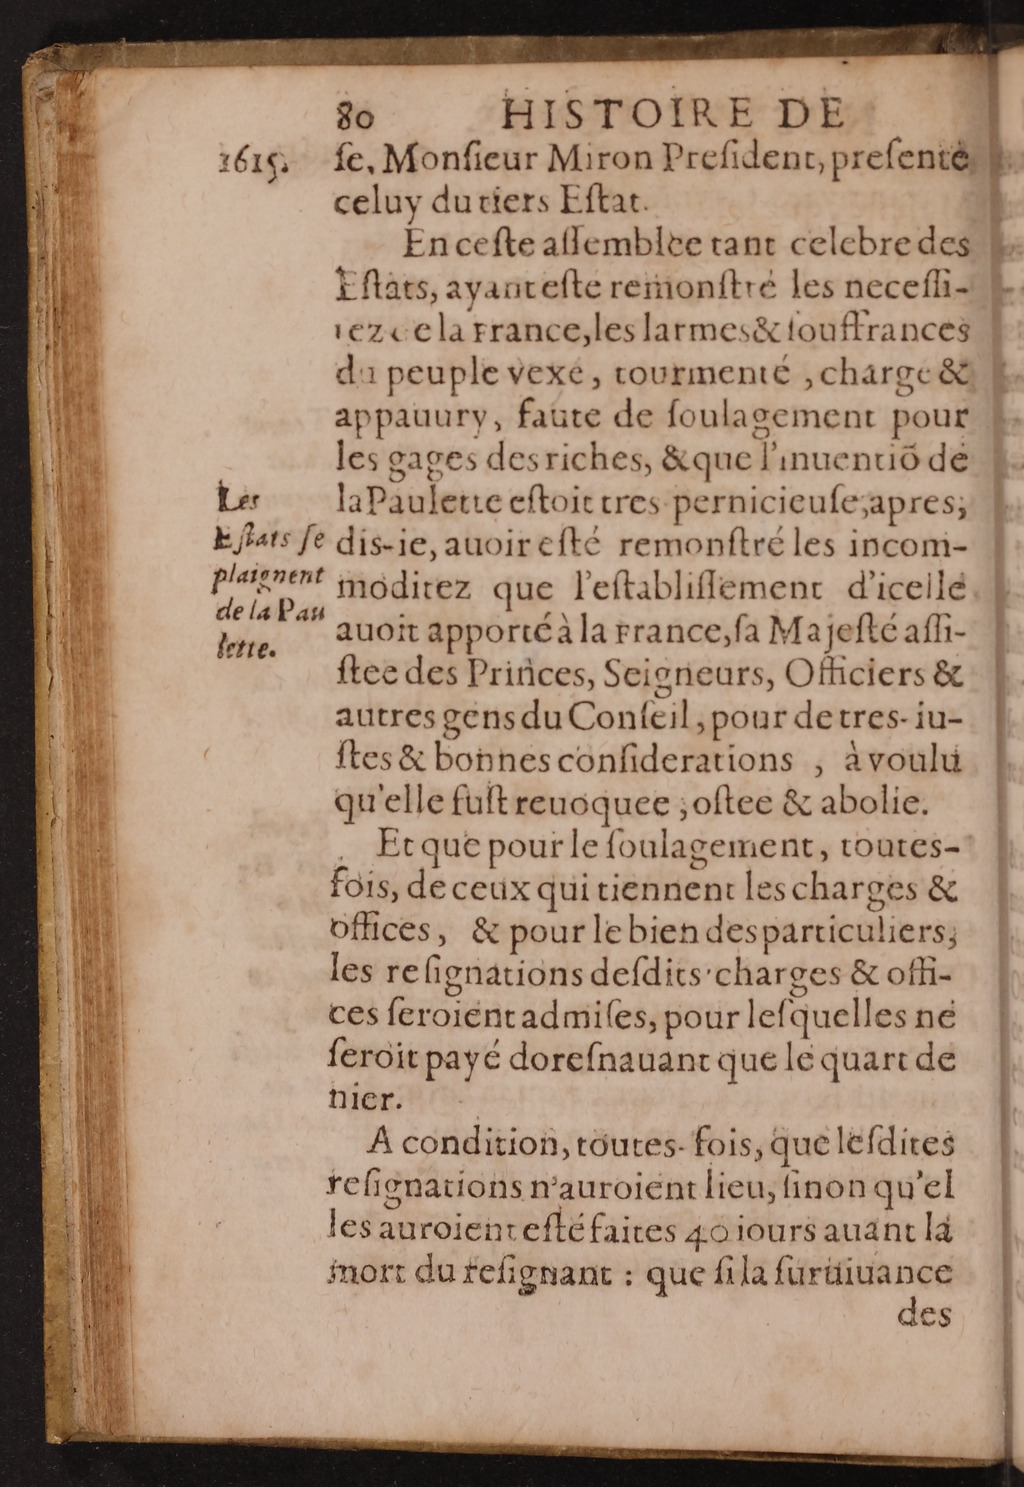 80 HISTOIRE DE
1615. ſe, Monſieur Miron Preſident, preſente
celuy du tiers Eſtat.
En ceſte aſſemblee tant celebre des
Eſtats, ayant eſte remonſtré les neceſſi-
tez de la France, les larmes & ſouffrances
du peuple vexé, tourmenté, charge &
appauury, faute de ſoulagement pour
les gages des riches, & que l'inuentiõ de
la Paulette eſtoit tres pernicieuſe; apres;
dis-ie, auoir eſté remonſtré les incom-
moditez que l'eſtabliſſement d'icelle
auoit apporté à la France, ſa Majeſté aſſi-
ſtee des Princes, Seigneurs, Officiers &
autres gens du Conſeil, pour de tres-iu-
ſtes & bonnes conſiderations, à voulu
qu'elle fuſt reuoquee; oſtee & abolie.
Les
Eſtats ſe
plaignent
de la Pau
lette.
Et que pour le ſoulagement, toutes-
fois, de ceux qui tiennent les charges &
offices, & pour le bien des particuliers;
les reſignations deſdits charges & offi-
ces ſeroient admiſes, pour leſquelles ne
ſeroit payé doreſnauant que le quart de
nier.
A condition, toutes-fois, que leſdites
reſignations n'auroient lieu, ſinon qu'el
les auroient eſté faites 40 iours auant la
mort du reſignant : que ſi la ſuruiuance
des